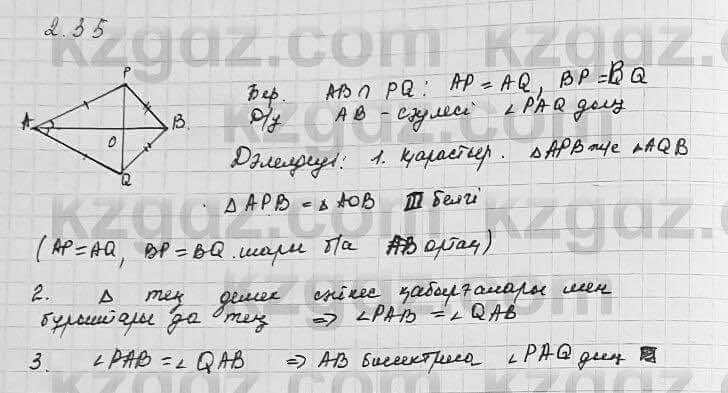 2.35
P
A
O
B
Q
Бер. AB ∩ PQ: AP = AQ, BP = BQ
D/y AB - сәулесі ∠PAQ дың
Дәлелдеуі: 1. қарастыр. △APB және △AQB
△APB = △AOB III белгі
(AP = AQ, BP = BQ шарты б/ша AB ортақ)
2. △ тең демек сәйкес қабырғалары мен
бұрыштары да тең => ∠PAB = ∠QAB
3. ∠PAB = ∠QAB => AB биссектриса ∠PAQ дың
kzgdz.com